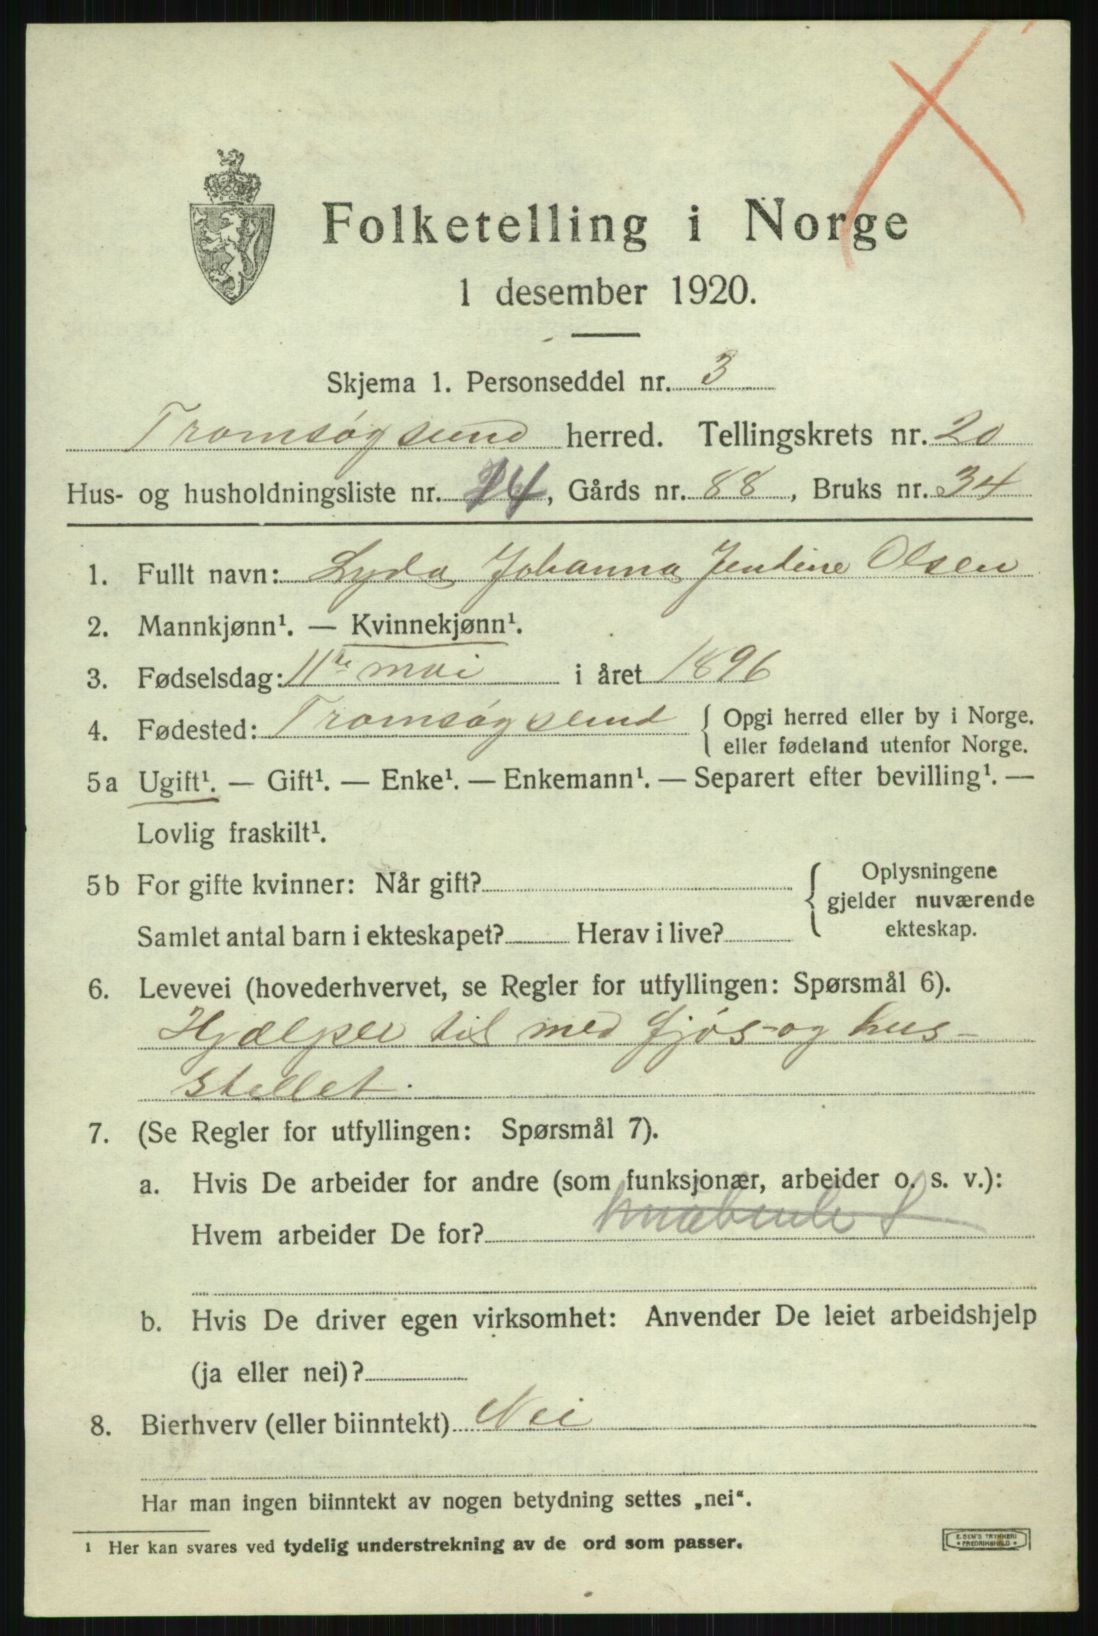 Folketelling i Norge
1 desember 1920.
Skjema 1. Personseddel nr. 3
Tromsøysund herred. Tellingskrets nr. 20
Hus- og husholdningsliste nr. 14, Gårds nr. 88, Bruks nr. 34
1. Fullt navn: Lyda Johanna Jentine Olsen
2. Mannkjønn¹. — Kvinnekjønn¹.
3. Fødselsdag: 11te mai i året 1896
4. Fødested: Tromsøysund { Opgi herred eller by i Norge.
eller fødeland utenfor Norge.
5a Ugift¹. — Gift¹. — Enke¹. — Enkemann¹. — Separert efter bevilling¹. —
Lovlig fraskilt¹.
5b For gifte kvinner: Når gift? { Oplysningene
gjelder nuværende
ekteskap.
Samlet antal barn i ekteskapet? Herav i live?
6. Levevei (hovederhvervet, se Regler for utfyllingen: Spørsmål 6).
Hjælper til med fjøs- og hus-
stellet.
7. (Se Regler for utfyllingen: Spørsmål 7).
a. Hvis De arbeider for andre (som funksjonær, arbeider o. s. v.):
Hvem arbeider De for?
b. Hvis De driver egen virksomhet: Anvender De leiet arbeidshjelp
(ja eller nei)?
8. Bierhverv (eller biinntekt) Nei
Har man ingen biinntekt av nogen betydning settes „nei“.
¹ Her kan svares ved tydelig understrekning av de ord som passer.